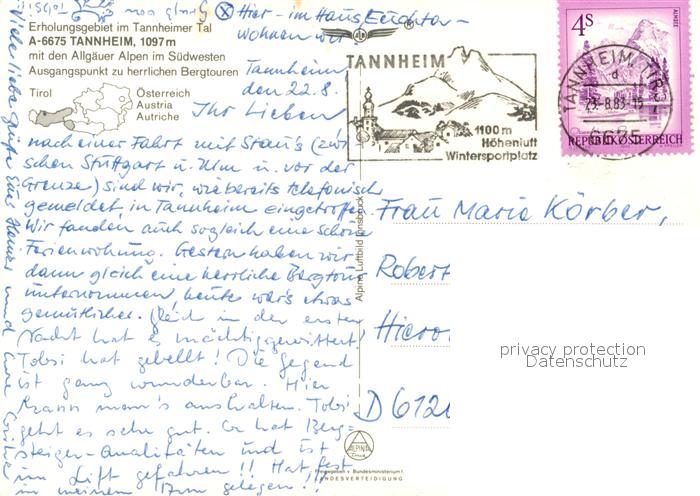 Hier - im Haus Enzian -
wohnen wir
Erholungsgebiet im Tannheimer Tal
A-6675 TANNHEIM, 1097 m
mit den Allgäuer Alpen im Südwesten
Ausgangspunkt zu herrlichen Bergtouren
Tirol
Österreich
Austria
Autriche
Tannheim
den 22.8.
Ihr Lieben
nach einer Fahrt mit Stau's (zwi-
schen Stuttgart u. Ulm u. vor der
Grenze) sind wir, wie bereits telefonisch
gemeldet, in Tannheim eingetroffen.
Wir fanden auch sogleich eine schöne
Ferienwohnung. Gestern haben wir
dann gleich eine herrliche Bergtour
unternommen, heute wär's etwas
gemütlicher. Gleich in der ersten
Nacht hat es mächtig gewittert
Tobsi hat gebellt! Die Gegend
ist ganz wunderbar. Hier
kann man's aushalten. Tobsi
geht es sehr gut. Er hat Berg-
steiger-Qualitäten und ist
im Lift gefahren!! Hat fest
in meinem Arm gelegen!!
Viele liebe Grüße Eure Hanne und
TANNHEIM
1100 m
Höhenluft
Wintersportplatz
4 S
ALMSEE
REPUBLIK ÖSTERREICH
TANNHEIM, TIROL
d
23.-8.83-15
6675
Frau Maria Körber,
Robert
Hieron
D 612
Alpine Luftbild Innsbruck
ALPINE
Freigegeben v. Bundesministerium f.
LANDESVERTEIDIGUNG
privacy protection
Datenschutz